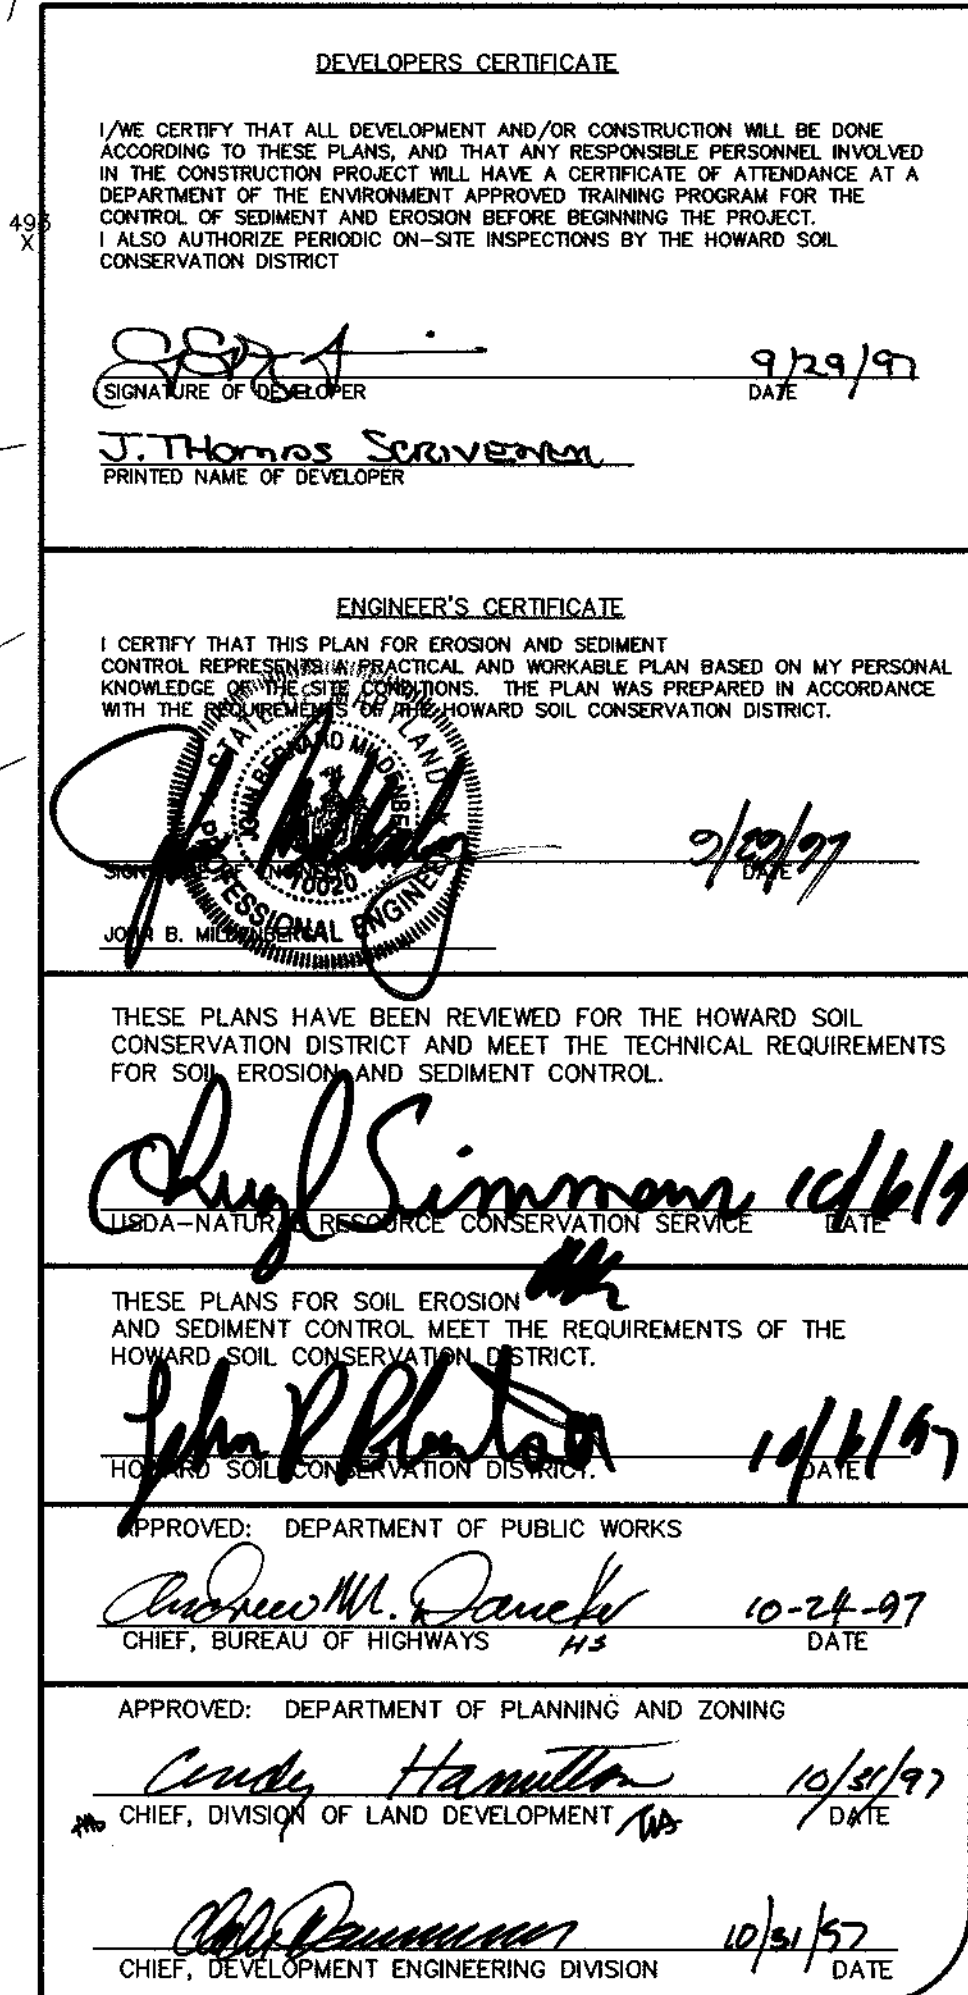 DEVELOPERS CERTIFICATE
I/WE CERTIFY THAT ALL DEVELOPMENT AND/OR CONSTRUCTION WILL BE DONE
ACCORDING TO THESE PLANS, AND THAT ANY RESPONSIBLE PERSONNEL INVOLVED
IN THE CONSTRUCTION PROJECT WILL HAVE A CERTIFICATE OF ATTENDANCE AT A
DEPARTMENT OF THE ENVIRONMENT APPROVED TRAINING PROGRAM FOR THE
CONTROL OF SEDIMENT AND EROSION BEFORE BEGINNING THE PROJECT.
I ALSO AUTHORIZE PERIODIC ON-SITE INSPECTIONS BY THE HOWARD SOIL
CONSERVATION DISTRICT
493
X
9/29/97
SIGNATURE OF DEVELOPER DATE
J. THOMAS SCRIVENER
PRINTED NAME OF DEVELOPER
ENGINEER'S CERTIFICATE
I CERTIFY THAT THIS PLAN FOR EROSION AND SEDIMENT
CONTROL REPRESENTS A PRACTICAL AND WORKABLE PLAN BASED ON MY PERSONAL
KNOWLEDGE OF THE SITE CONDITIONS. THE PLAN WAS PREPARED IN ACCORDANCE
WITH THE REQUIREMENTS OF THE HOWARD SOIL CONSERVATION DISTRICT.
STATE OF MARYLAND
JOHN BERNARD MILDENBERG
10020
PROFESSIONAL ENGINEER
9/29/97
SIGNATURE OF ENGINEER DATE
JOHN B. MILDENBERG
THESE PLANS HAVE BEEN REVIEWED FOR THE HOWARD SOIL
CONSERVATION DISTRICT AND MEET THE TECHNICAL REQUIREMENTS
FOR SOIL EROSION AND SEDIMENT CONTROL.
Cheryl Simmons 10/6/9
USDA-NATURAL RESOURCE CONSERVATION SERVICE DATE
THESE PLANS FOR SOIL EROSION
AND SEDIMENT CONTROL MEET THE REQUIREMENTS OF THE
HOWARD SOIL CONSERVATION DISTRICT.
John R 10/6/97
HOWARD SOIL CONSERVATION DISTRICT. DATE
APPROVED: DEPARTMENT OF PUBLIC WORKS
Andrew M. 10-24-97
CHIEF, BUREAU OF HIGHWAYS HS DATE
APPROVED: DEPARTMENT OF PLANNING AND ZONING
Cindy Hamilton 10/31/97
CHIEF, DIVISION OF LAND DEVELOPMENT DATE
10/31/97
CHIEF, DEVELOPMENT ENGINEERING DIVISION DATE